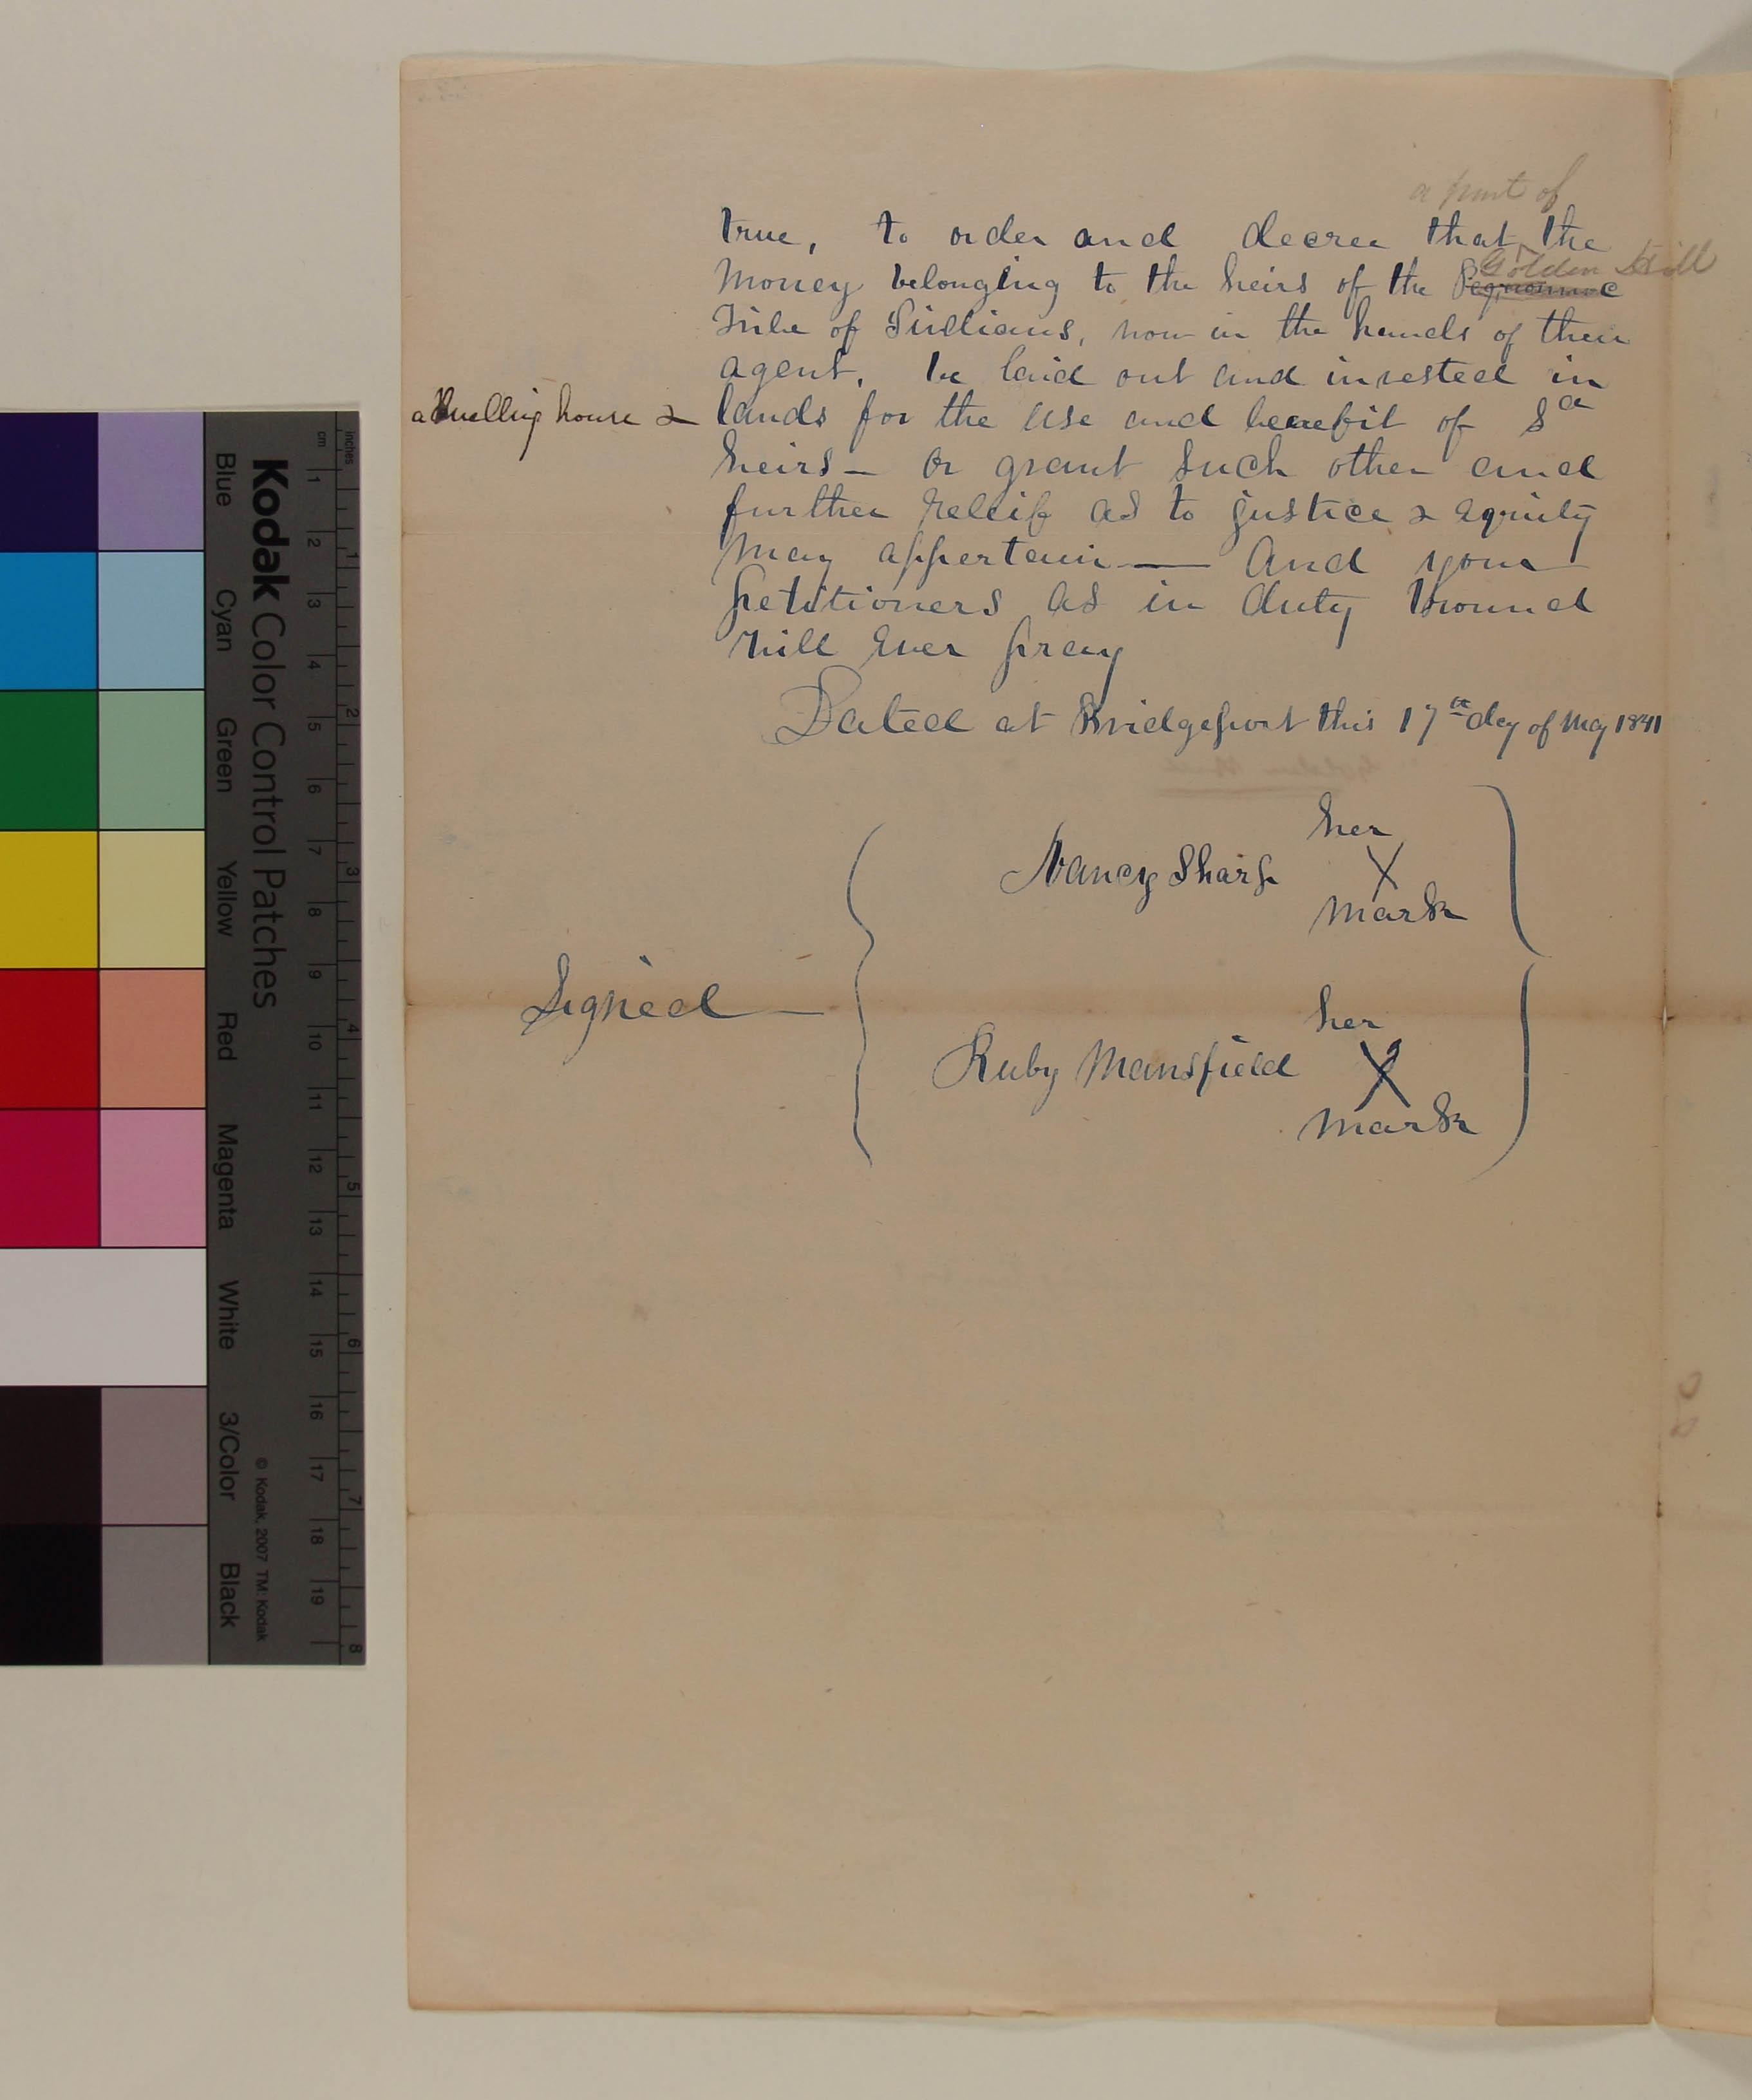 a part of
true, to order and decree that the
Golden Hill
money belonging to the heirs of the Pequonnoc
Tribe of Indians, now in the hands of their
agent, be laid out and invested in
a dwelling house & lands for the use and benefit of sd
heirs — or grant such other and
further releif as to justice & equity
may appertain — And your
petitioners as in duty bound
will ever pray
Dated at Bridgeport this 17th day of May 1841
her
Nancy Sharp X
mark
Signed —
her
Ruby Mansfield X
mark
Kodak Color Control Patches
Blue Cyan Green Yellow Red Magenta White 3/Color Black
© Kodak, 2007 TM: Kodak
cm 1 2 3 4 5 6 7 8 9 10 11 12 13 14 15 16 17 18 19
inches 1 2 3 4 5 6 7 8